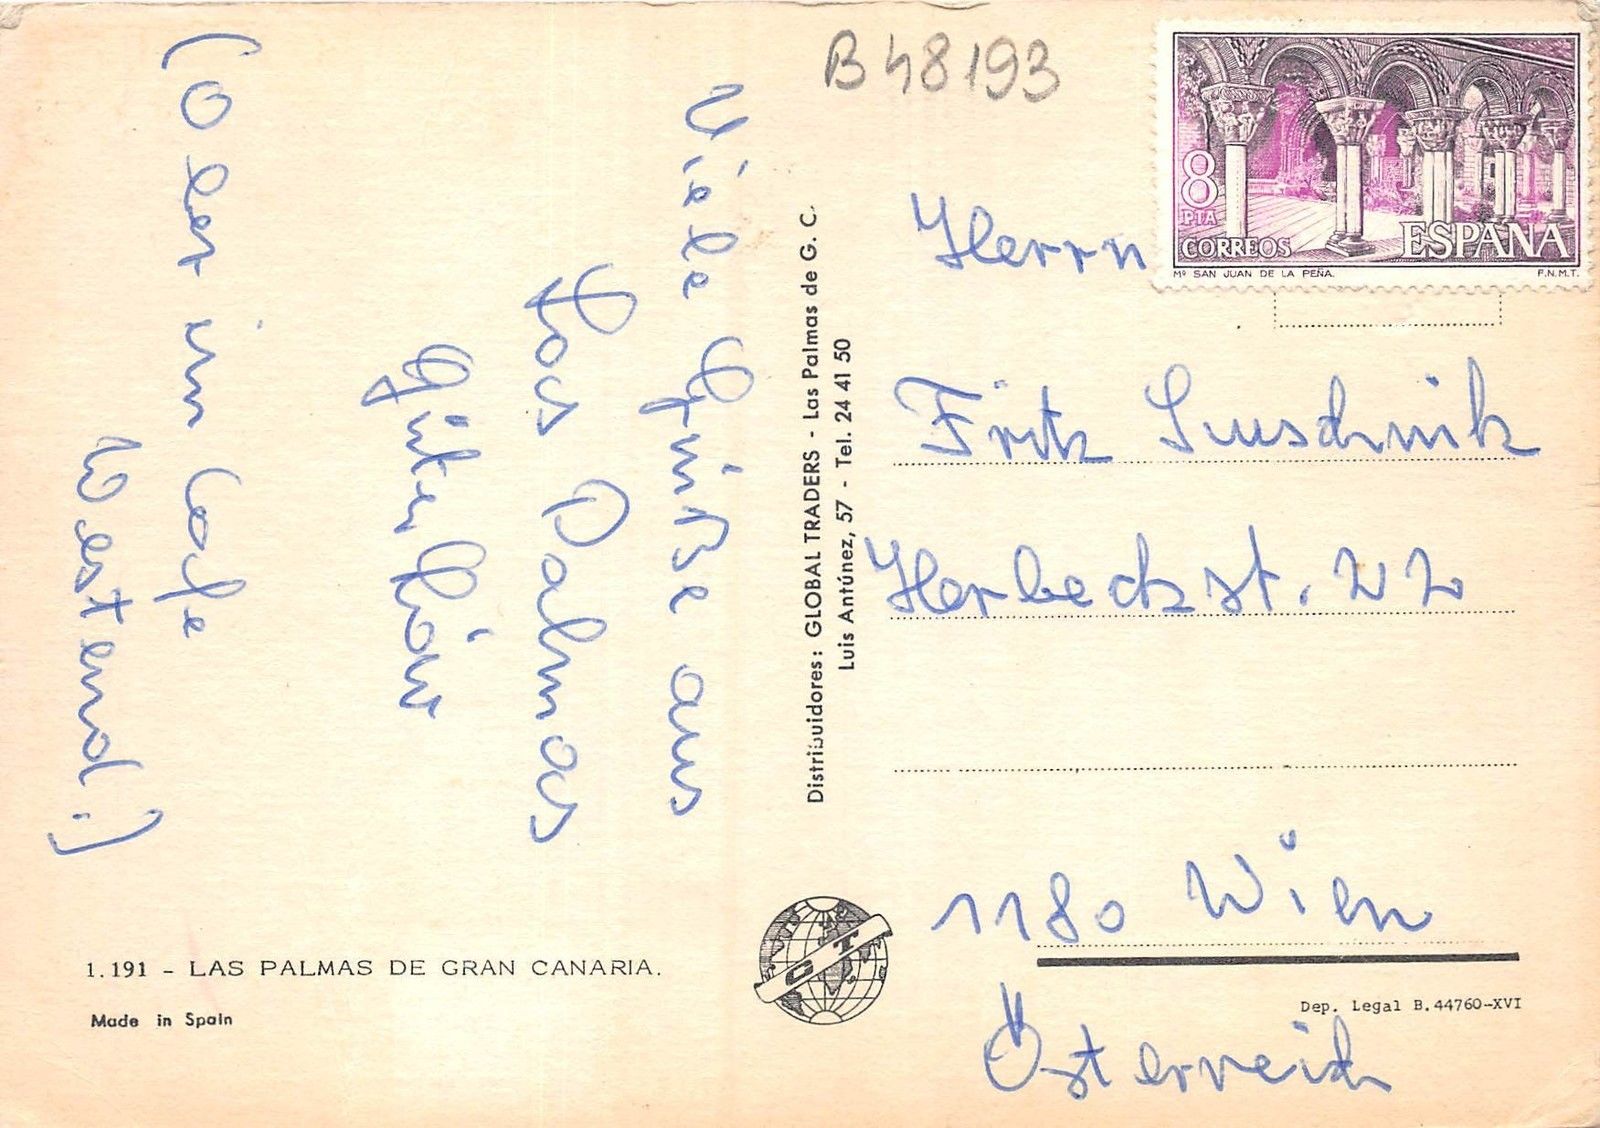 B 48193
8
PTA
CORREOS
ESPAÑA
Mº SAN JUAN DE LA PEÑA.
F.N.M.T.
Viele Grüße aus
Las Palmas
Günter
(Oder im Cafe
Westend!)
Distribuidores: GLOBAL TRADERS - Las Palmas de G. C.
Luis Antúnez, 57 - Tel. 24 41 50
Herrn
Fritz Suschnik
Herbeckst. 22
1180 Wien
Österreich
GT
1.191 - LAS PALMAS DE GRAN CANARIA.
Made in Spain
Dep. Legal B. 44760-XVI